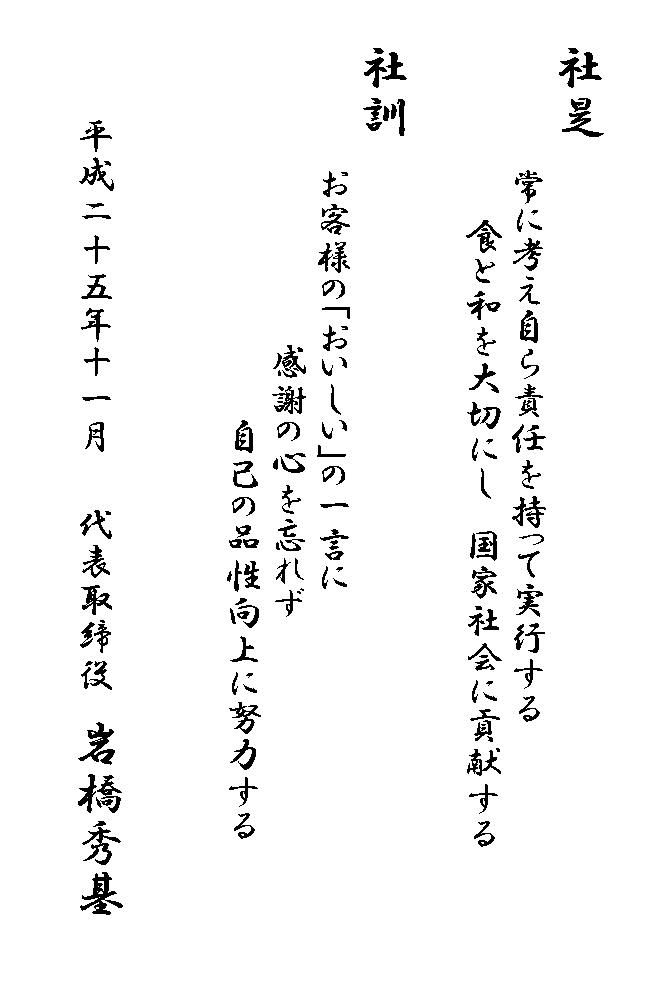 社是
常に考え自ら責任を持って実行する
食と和を大切にし 国家社会に貢献する
社訓
お客様の「おいしい」の一言に
感謝の心を忘れず
自己の品性向上に努力する
平成二十五年十一月 代表取締役 岩橋秀基